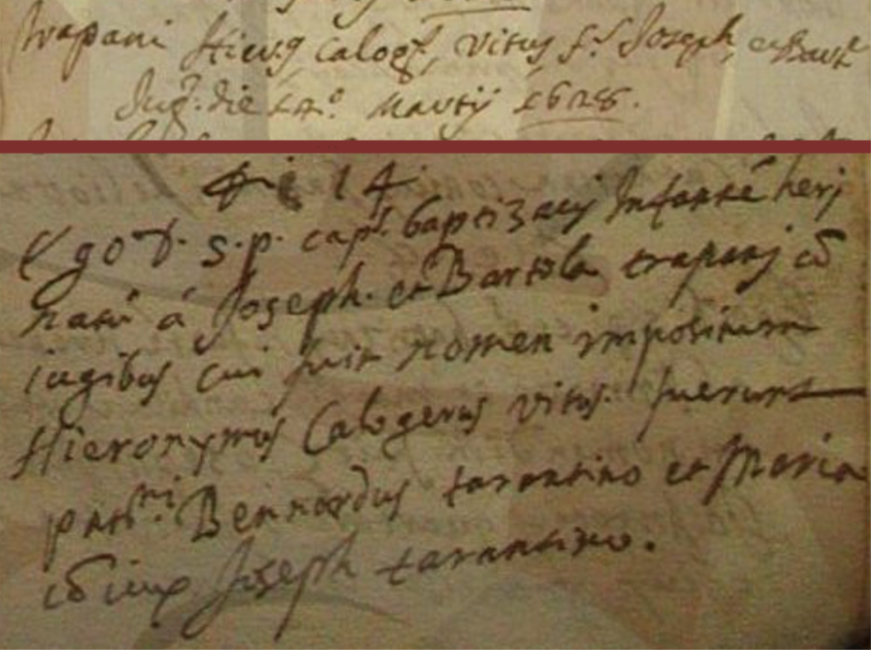 trapani Hier.s calog.s vitus f. Joseph, et Bart.e
Jug. die 14.o Martij 1628.
die 14
Ego D. s. p. cap.s baptizavj Infantē herj
natū á Joseph. et Bartola trapanj cō
iugibus cui fuit nomen impositum
Hieronymus Calogerus vitus. fuerunt
patrini Bernardus tarantino et Maria
uxor Joseph tarantino.